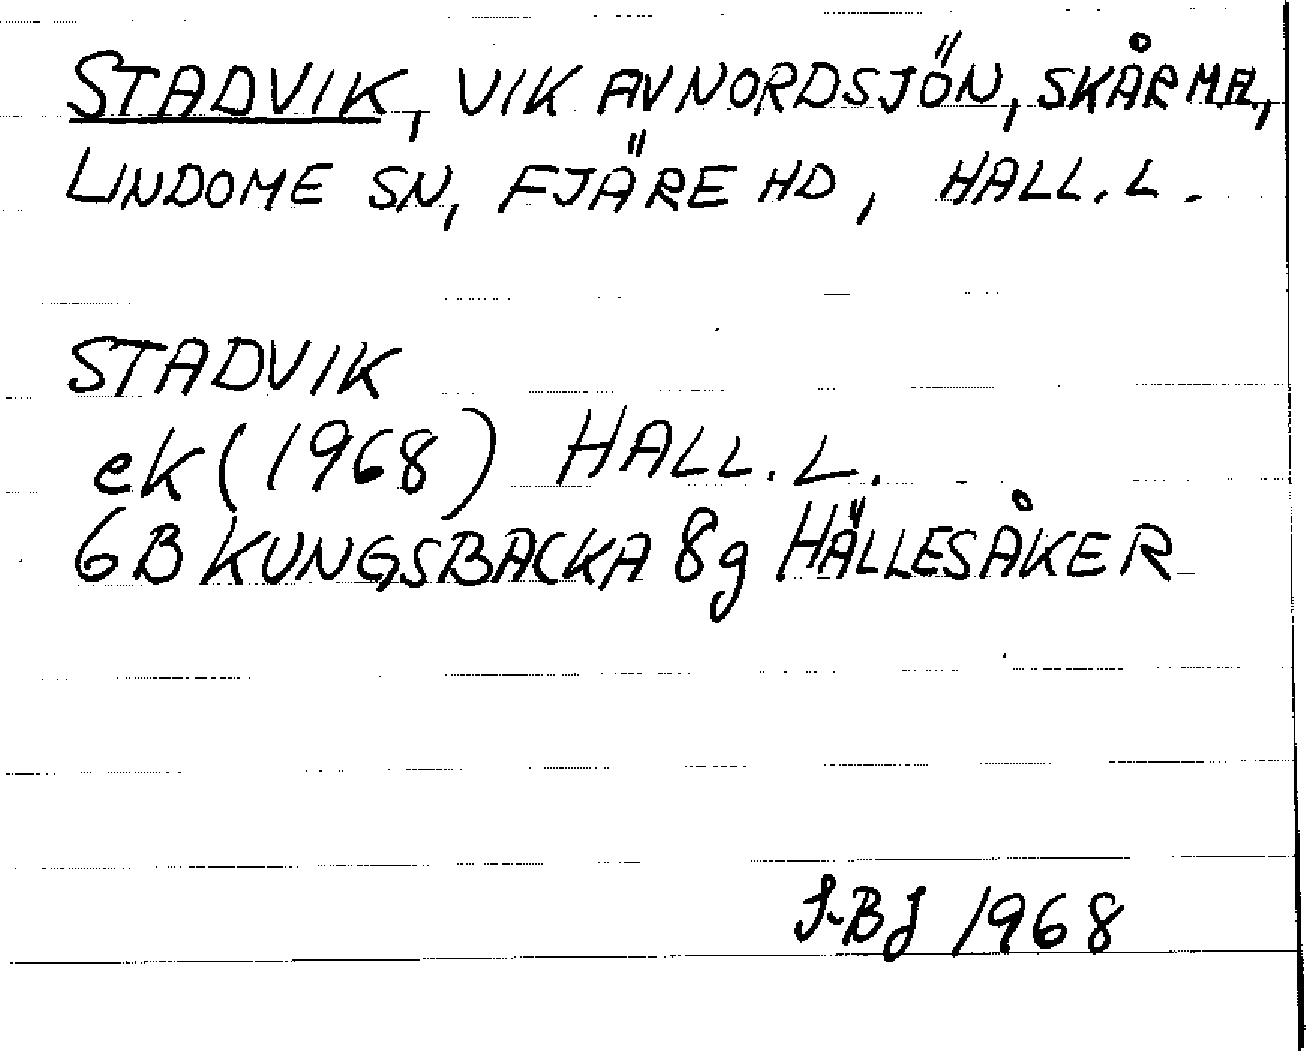 STADVIK, VIK AV NORDSJÖN, SKÅRMA,
LINDOME SN, FJÄRE HD, HALL. L.
STADVIK
ek (1968) HALL. L.
6B KUNGSBACKA 8g HÄLLESÅKER
1968